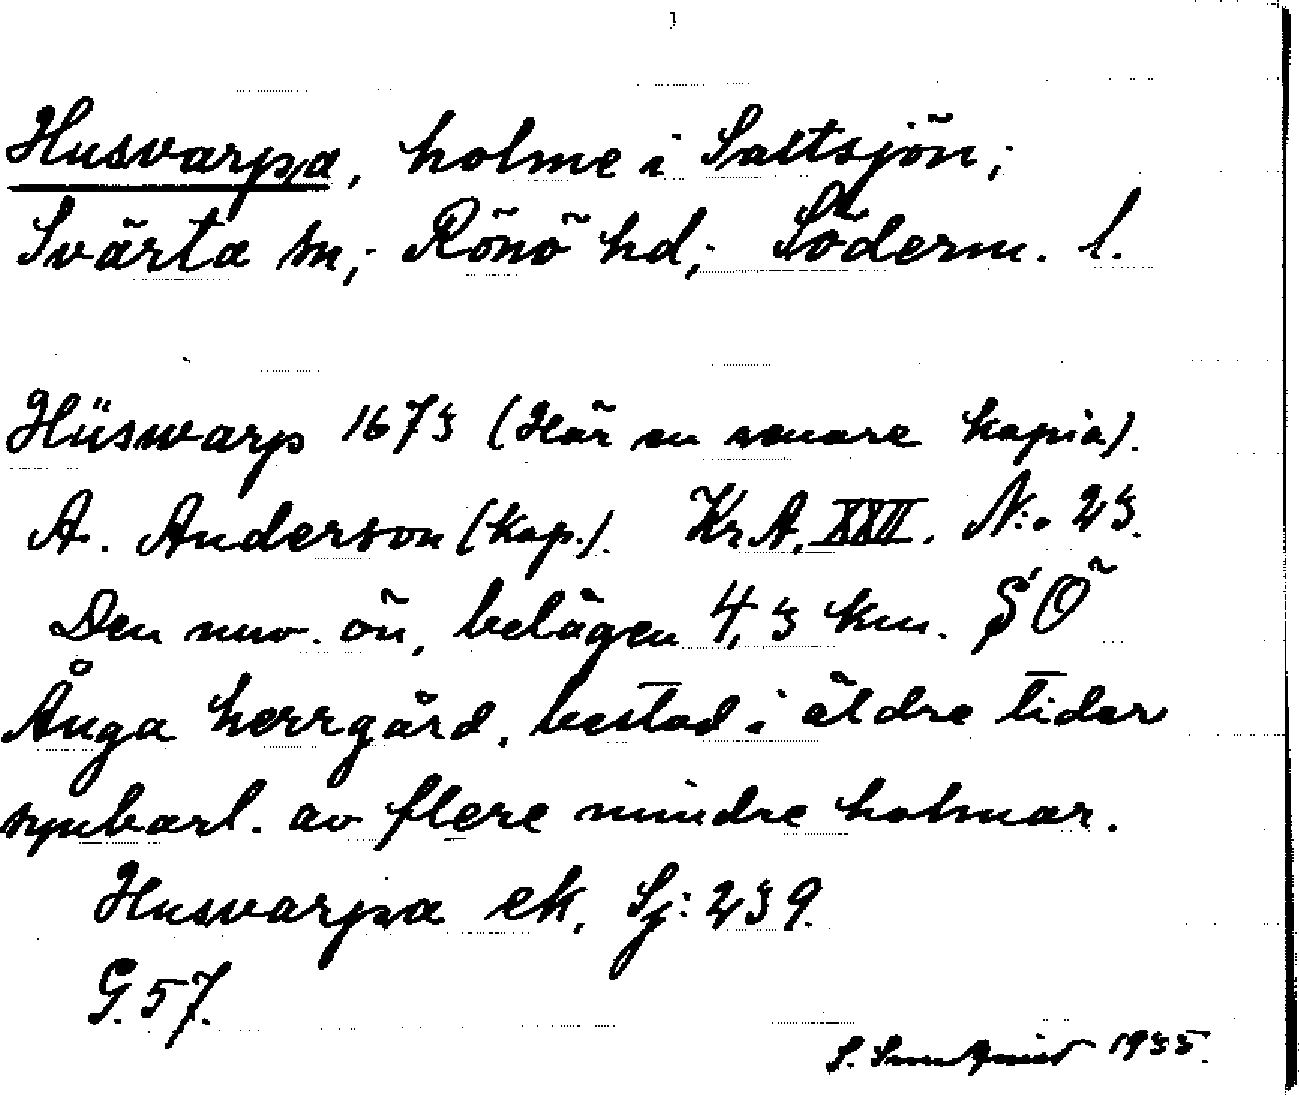 Husvarpa, holme i Saltsjön;
Svärta sn; Rönö hd; Söderm. l.
Hüswarp 1673 (Här en senare kopia).
A. Anderson (kop.). Kr.A. XXVI. N:o 23.
Den nuv. ön, belägen 4,3 km. SÖ
Ånga herrgård, bestod i äldre tider
synbarl. av flere mindre holmar.
Husvarpa ek. Sj: 239.
G. 57.
S. 1935.